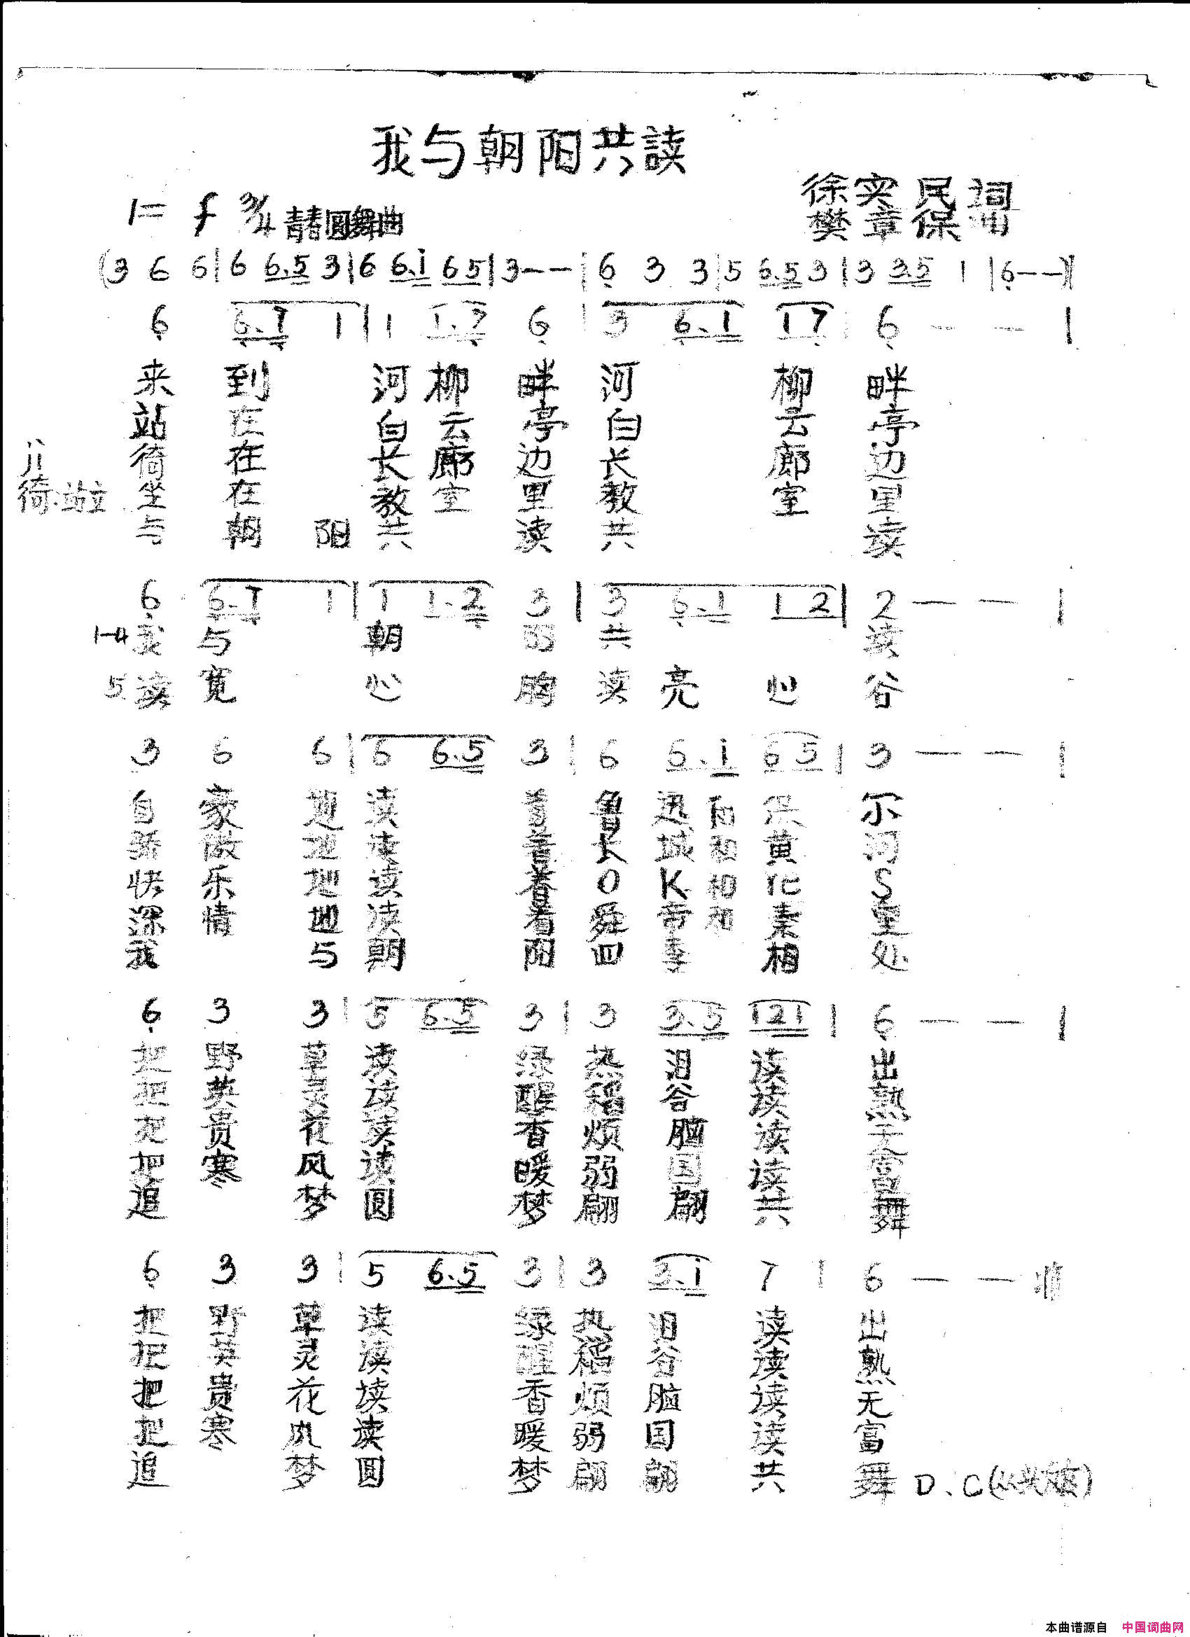 我与朝阳共読
徐实民 词
樊章保 曲
1= f 3/4 青春圆舞曲
(3 6 6 | 6 6.5 3 | 6 6.i 65 | 3 - - | 6 3 3 | 5 6.5 3 | 3 3.5 1 | 6 - -)
6 6.7 1 | 1 1.7 6 | 3 6.1 17 | 6 - - |
来 到 河 柳 畔 河 柳 畔
站 在 白 云 亭 白 云 亭
徛 在 长 廊 边 长 廊 边
坐 在 教 室 里 教 室 里
与 朝 阳 共 读 共 读
徛:站立
6 6.7 1 | 1 1.2 3 | 3 6.1 12 | 2 - - |
1-4 我 与 朝 阳 共 读
5 读 宽 心 胸 读 亮 心 谷
3 6 6 | 6 6.5 3 | 6 6.i 65 | 3 - - |
自 豪 地 读 着 鲁 迅 和 尔
骄 傲 地 读 着 长 城 和 黄 河
快 乐 地 读 着 O K 和 S
深 情 地 读 着 舜 帝 和 室
我 与 朝 阳 四 季 相 处
6 3 3 | 5 6.5 3 | 3 3.5 121 | 6 - - |
把 野 草 读 绿 热 泪 读 出
把 英 灵 读 醒 稻 谷 读 熟
把 贵 花 读 香 烦 脑 读 无
把 寒 风 读 暖 弱 国 读 富
追 梦 圆 梦 翩 翩 共 舞
6 3 3 | 5 6.5 3 | 3 3.i 7 | 6 - -
把 野 草 读 绿 热 泪 读 出
把 英 灵 读 醒 稻 谷 读 熟
把 贵 花 读 香 烦 脑 读 无
把 寒 风 读 暖 弱 国 读 富
追 梦 圆 梦 翩 翩 共 舞 D.C
本曲谱源自 中国词曲网